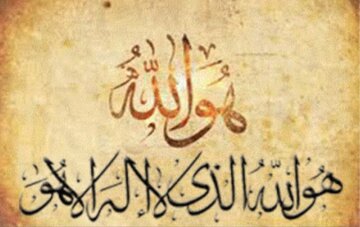 هُوَ اللهُ
هُوَ اللهُ الَّذِى لَا إِلٰهَ إِلَّا هُوَ